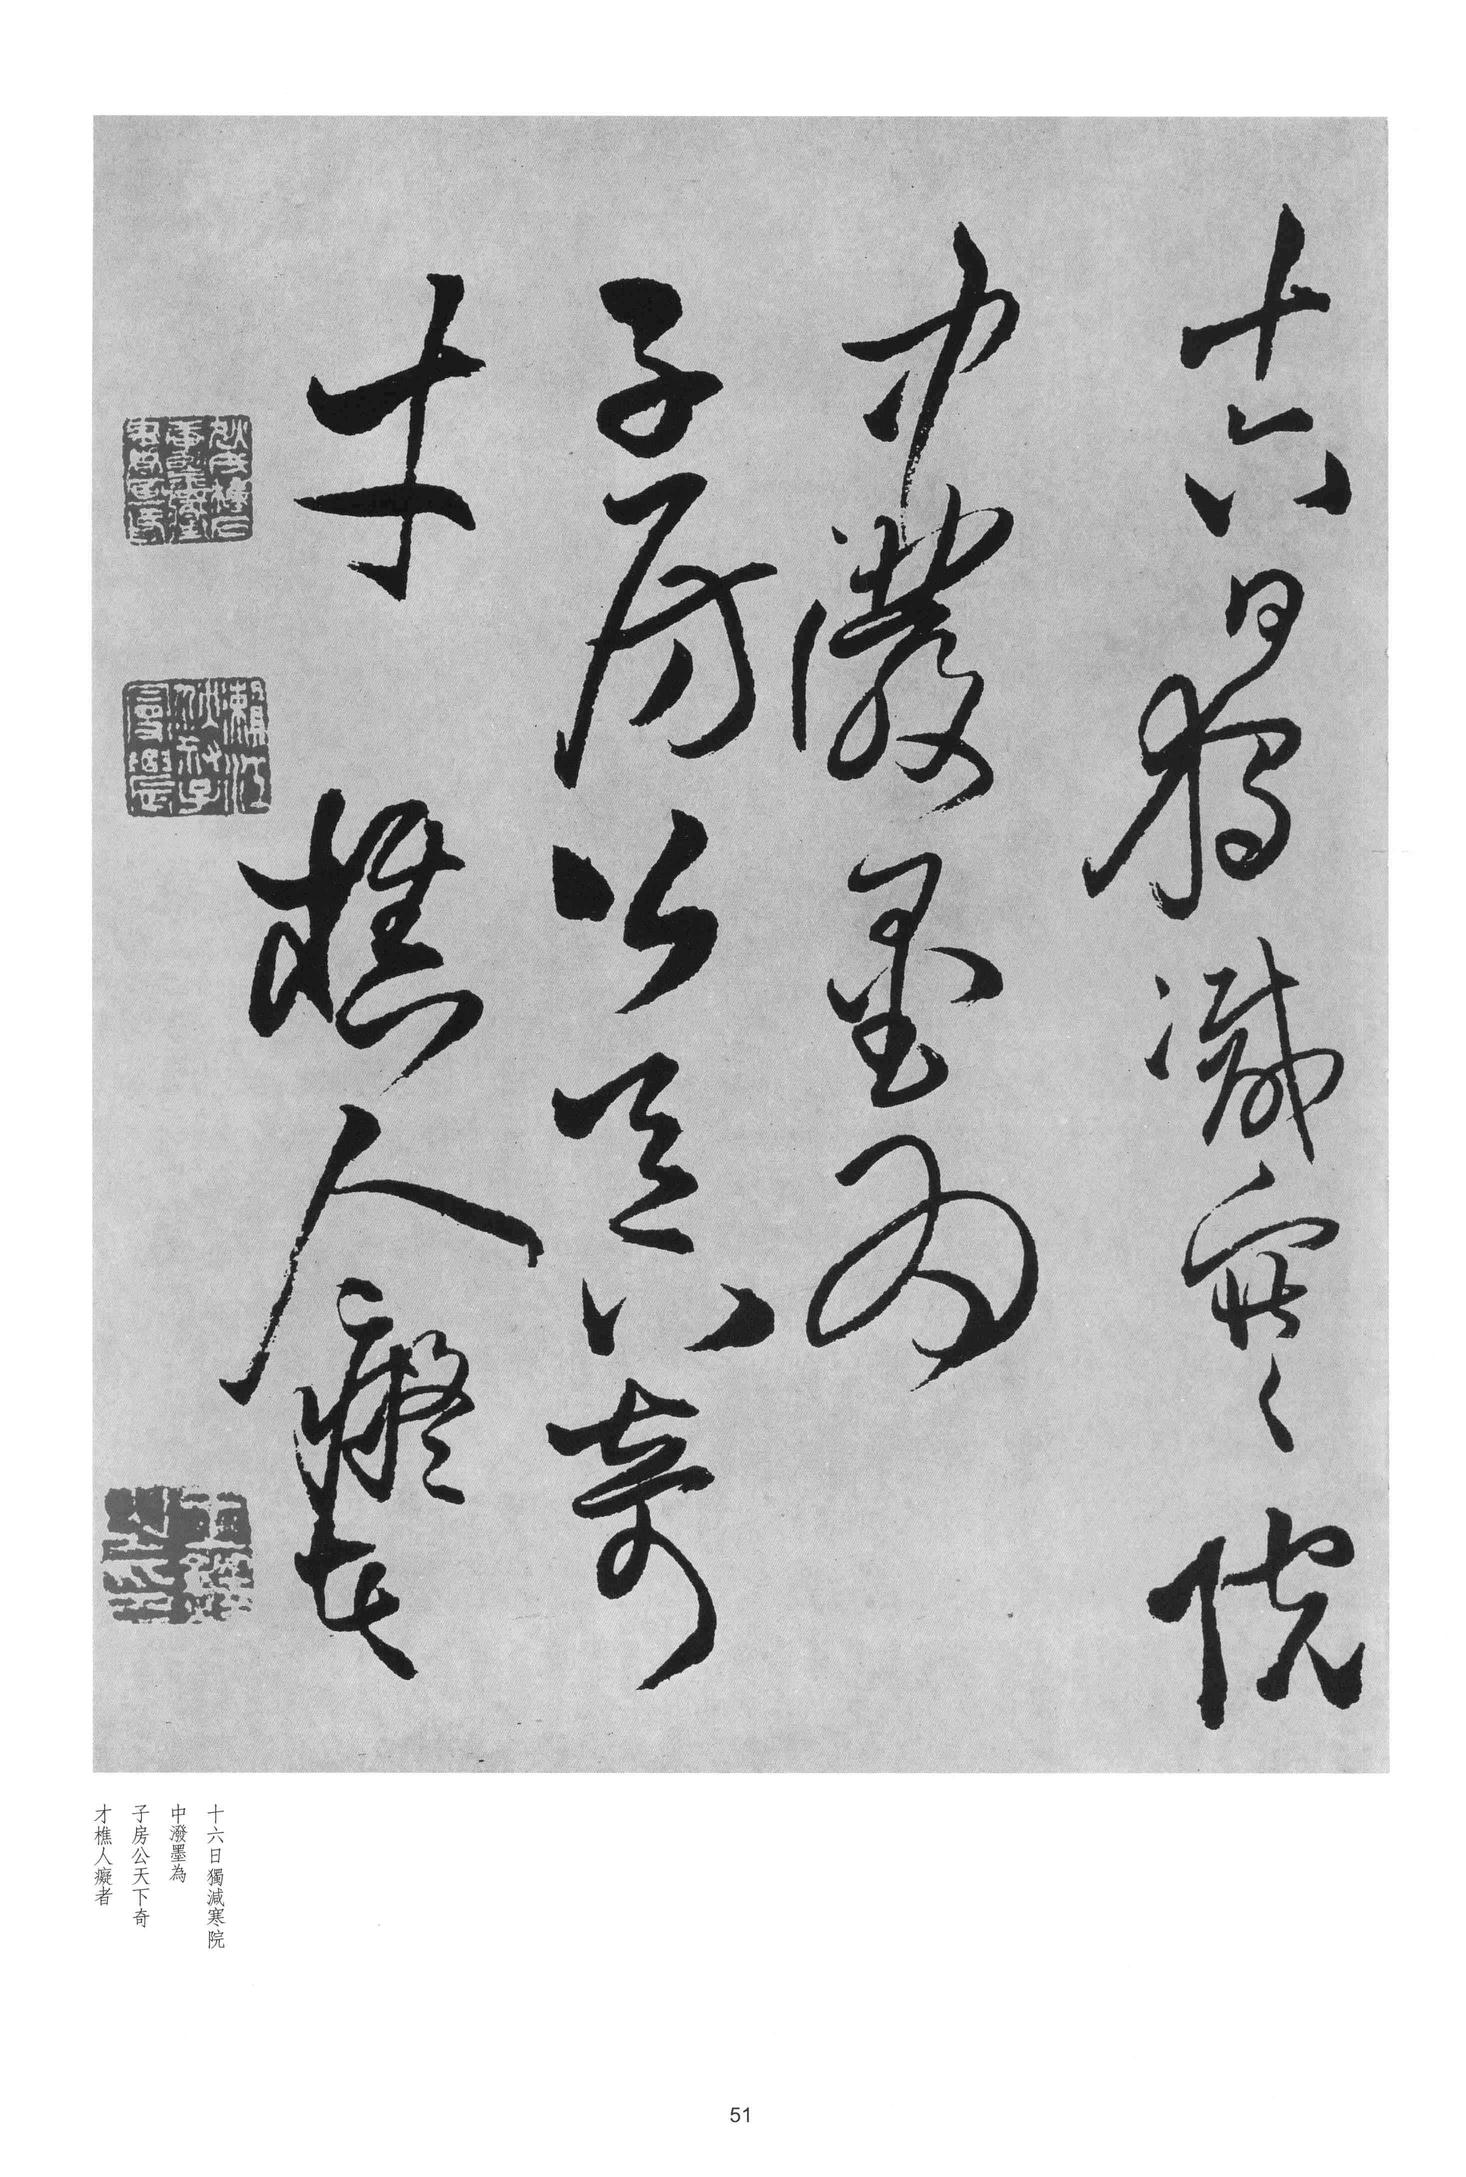 十六日獨減寒院
中潑墨為
子房公天下奇
才樵人癡者
十六日獨減寒院
中潑墨為
子房公天下奇
才樵人癡者
51